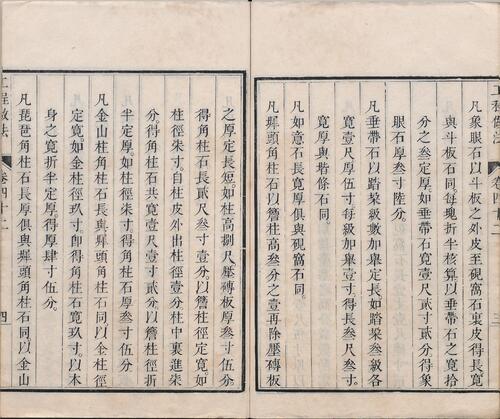 工程做法
卷四十二
三
凡象眼石以斗板之外皮至二硯窩石裏皮得長寬
與斗板石同每塊折半核算以垂帶石之寬拾
分之叁定厚如垂帶石寬壹尺貳寸貳分得象
眼石厚叁寸陸分
凡垂帶石以踏跺級數加舉定長如踏跺叁級各
寬壹尺厚伍寸每級加舉壹寸得長叁尺叁寸
寬厚與堦條石同
凡如意石長寬厚俱與硯窩石同
凡墀頭角柱石以簷柱高叁分之壹再除壓磚板
之厚定長短如柱高捌尺壓磚板厚叁寸伍分
得角柱石長貳尺叁寸壹分以簷柱徑定寬如
柱徑柒寸自柱皮外出柱徑壹分柱中裏進柒
分得角柱石共寬壹尺壹寸貳分以簷柱徑折
半定厚如柱徑柒寸得角柱石厚叁寸伍分
凡金山柱角柱石長與墀頭角柱石同以金柱徑
定寬如金柱徑玖寸卽得角柱石寬玖寸以本
身之寬折半定厚得厚肆寸伍分
凡琵琶角柱石長厚俱與墀頭角柱石同以金山
工程做法
卷四十二
四